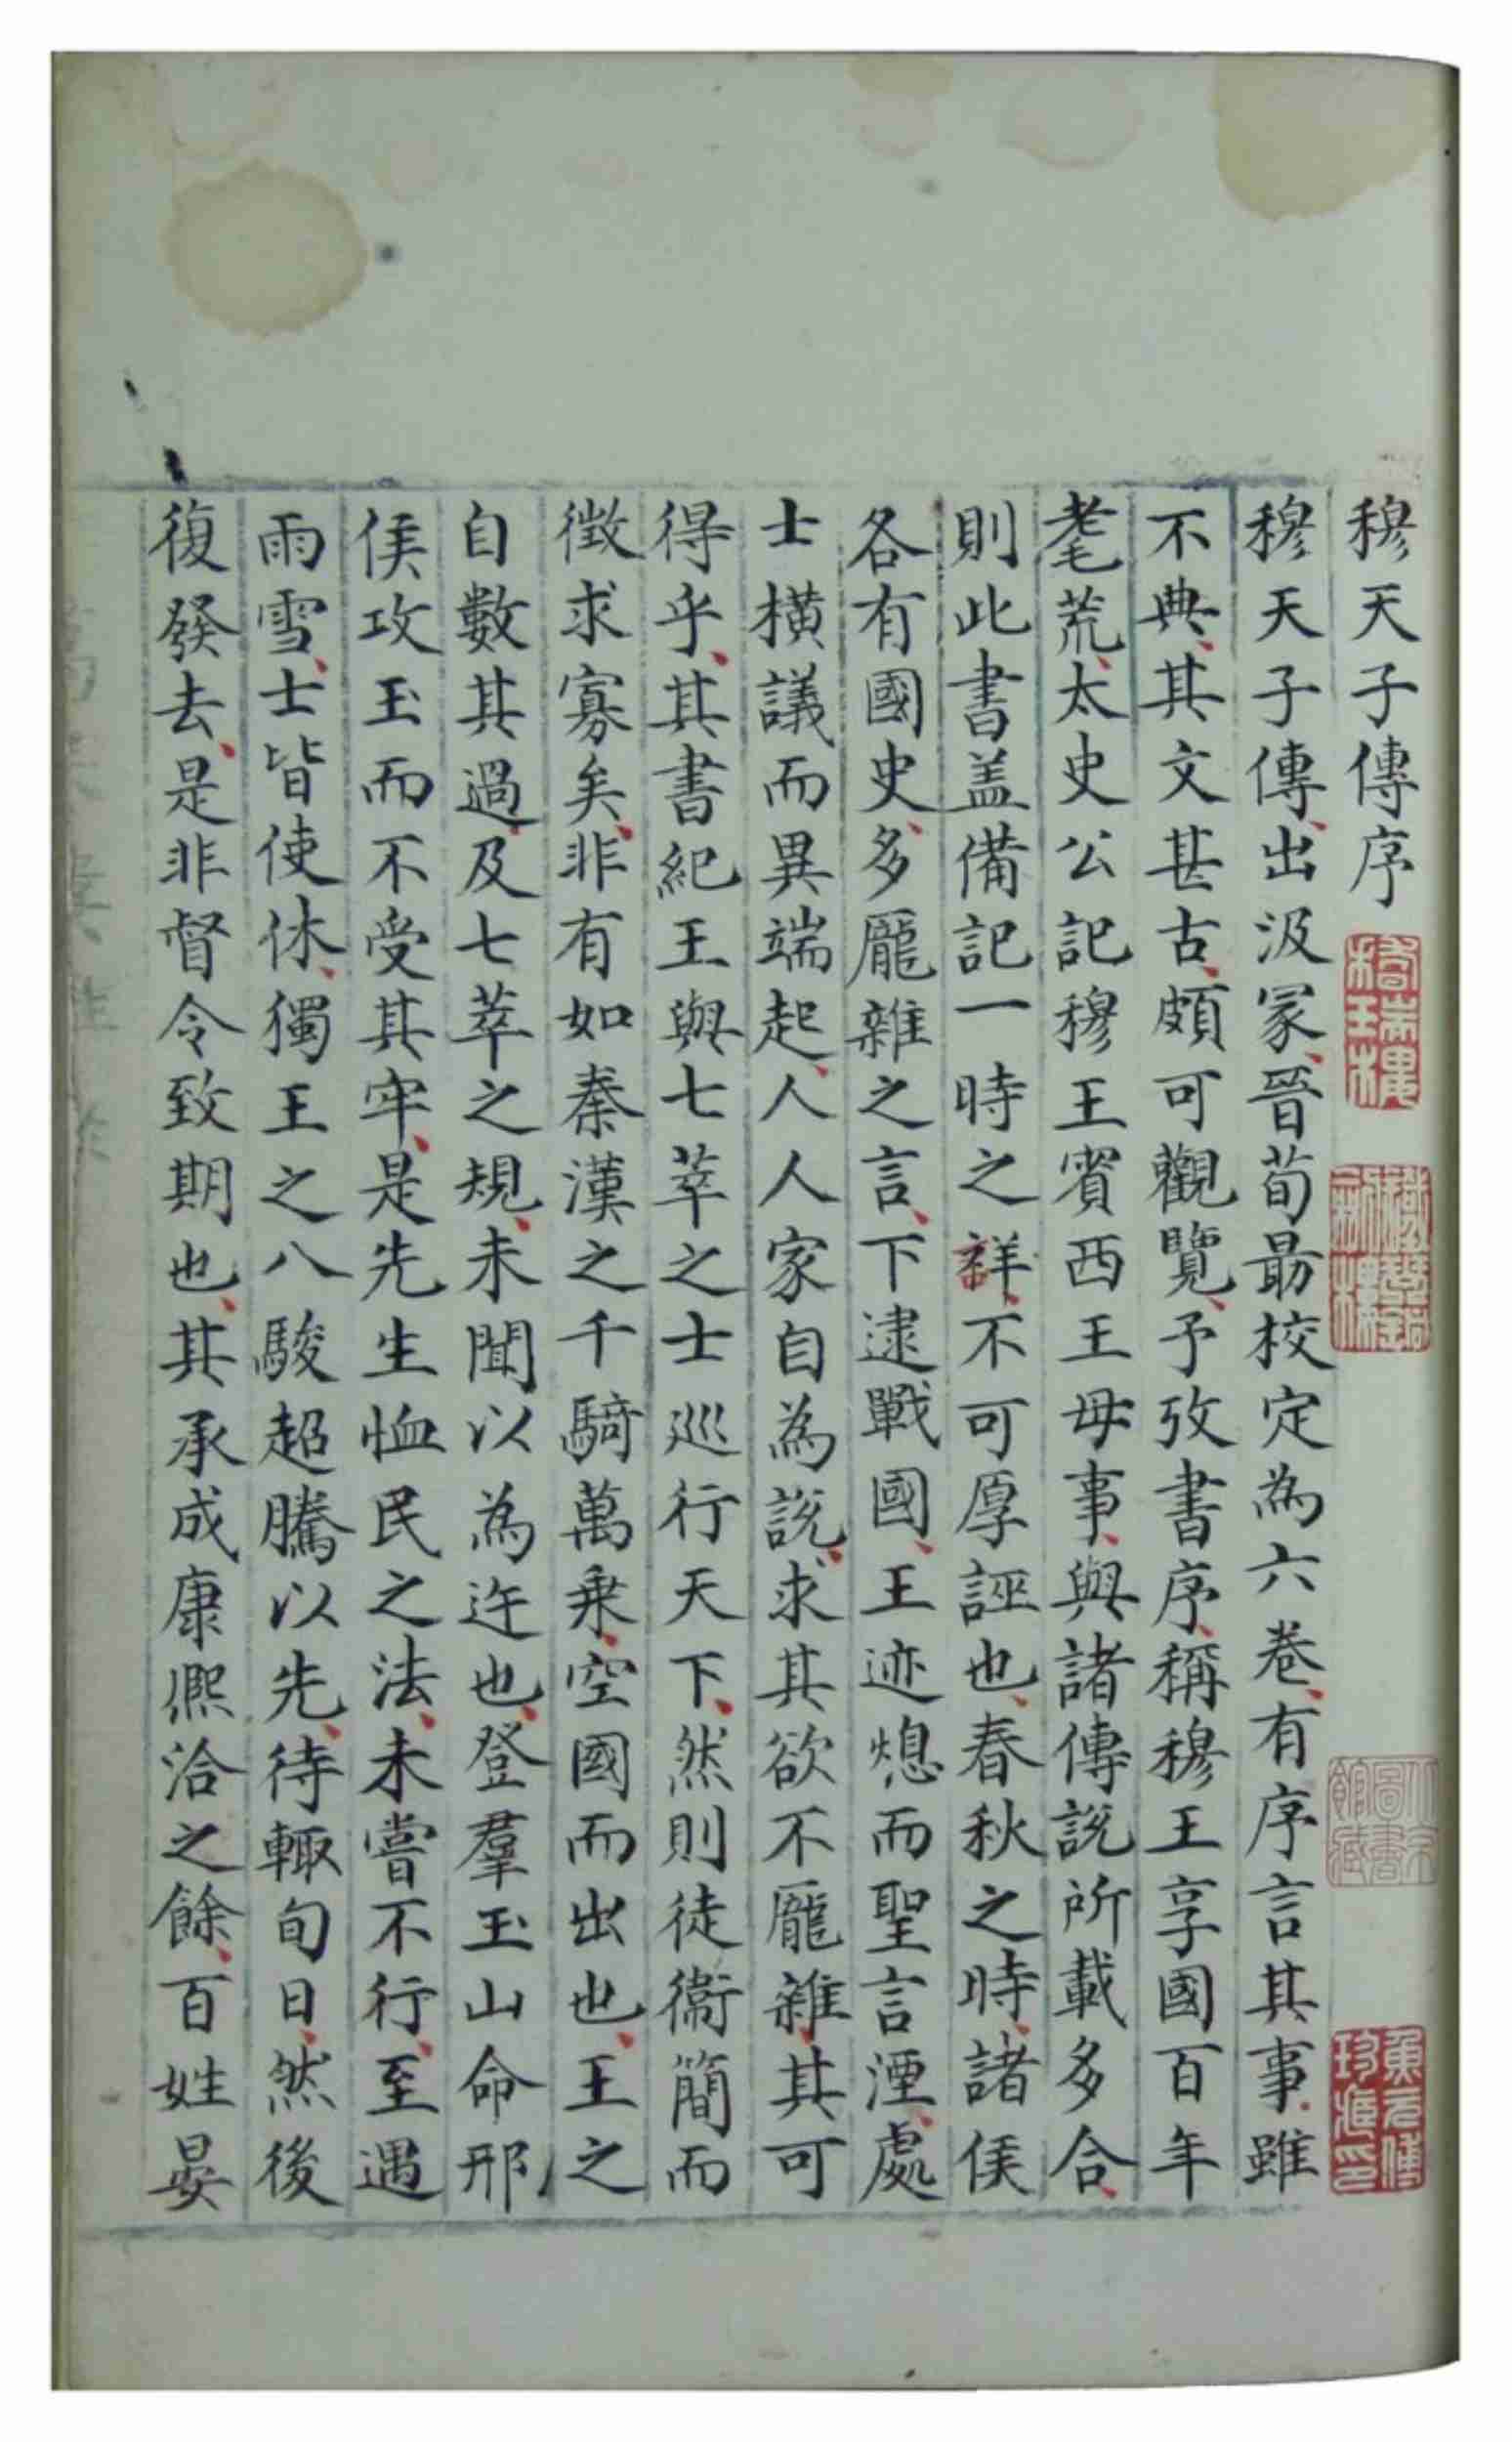 穆天子傳序
穆天子傳出汲冢晉荀勗校定為六卷有序言其事雖
不典其文甚古頗可觀覽予攷書序稱穆王享國百年
耄荒太史公記穆王賓西王母事與諸傳說所載多合
則此書盖備記一時之詳不可厚誣也春秋之時諸侯
各有國史多龐雜之言下逮戰國王迹熄而聖言湮處
士橫議而異端起人人家自為說求其欲不龐雜其可
得乎其書紀王與七萃之士巡行天下然則徒衛簡而
徵求寡矣非有如秦漢之千騎萬乗空國而出也王之
自數其過及七萃之規未聞以為迕也登羣玉山命邢
侯攻玉而不受其牢是先生恤民之法未嘗不行至遇
雨雪士皆使休獨王之八駿超騰以先待輙旬日然後
復發去是非督令致期也其承成康熈洽之餘百姓晏